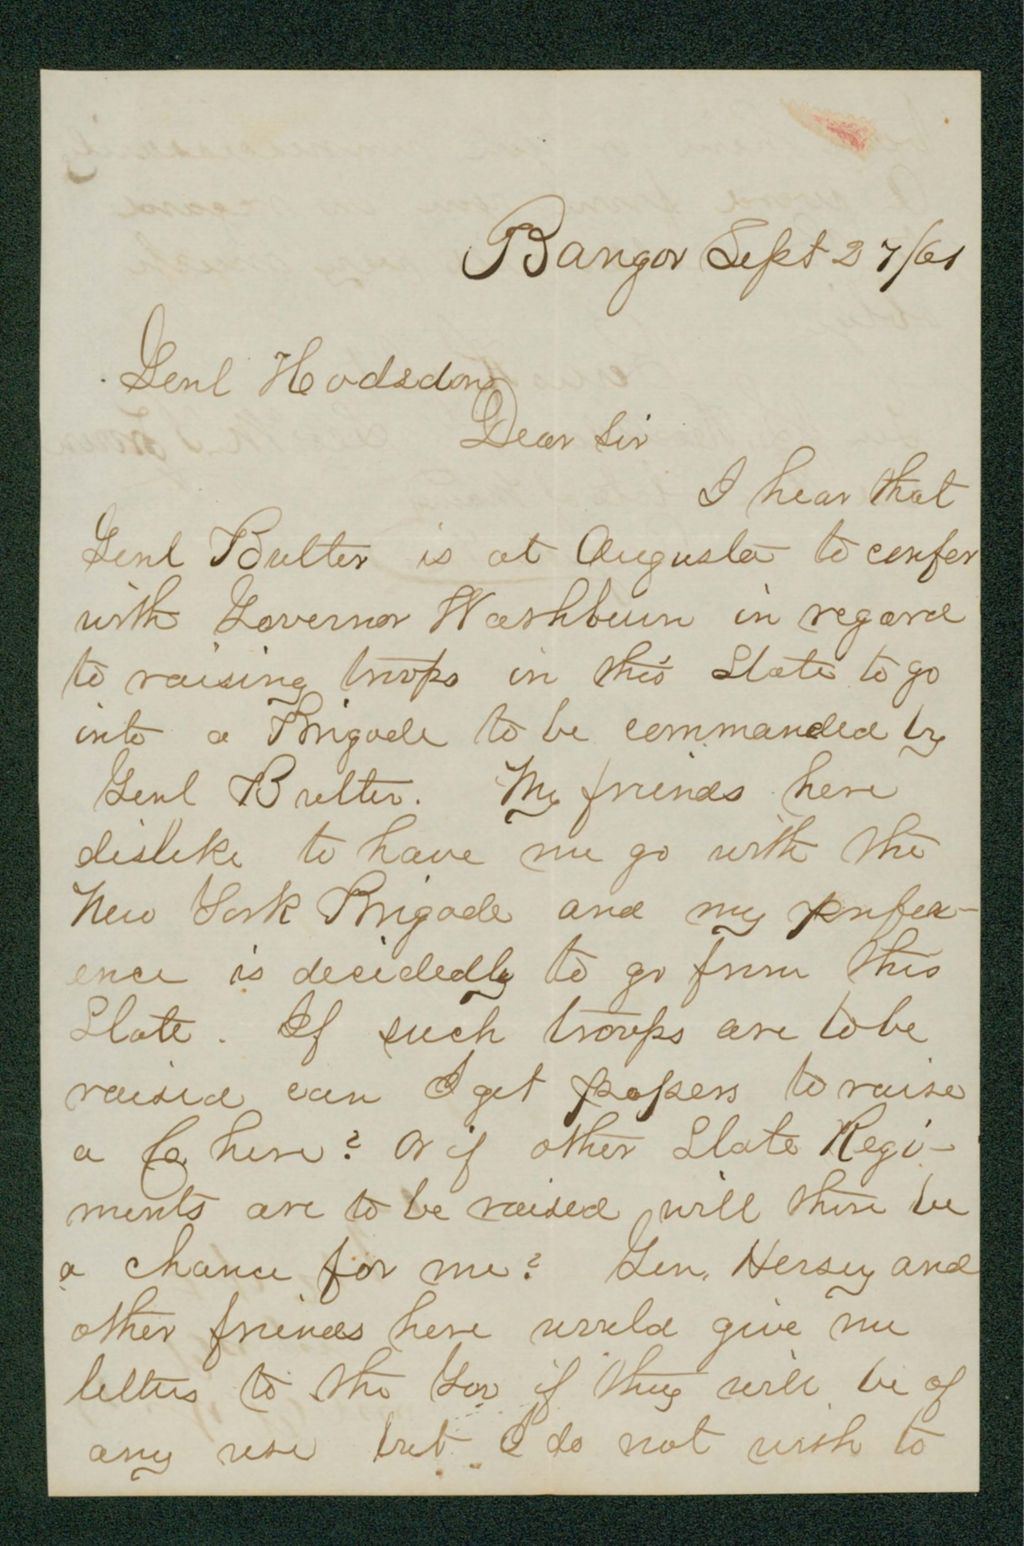 Bangor Sept 27/61
Genl Hodsdon
Dear Sir
I hear that
Genl Butler is at Augusta to confer
with Governor Washburn in regard
to raising troops in this State to go
into a Brigade to be commanded by
Genl Butler. My friends here
dislike to have me go with the
New York Brigade and my prefer-
ence is decidedly to go from this
State. If such troops are to be
raised can I get papers to raise
a Co here? or if other State Regi-
ments are to be raised will there be
a chance for me? Gen. Hersey and
other friends here would give me
letters to the Gov if they will be of
any use but I do not wish to